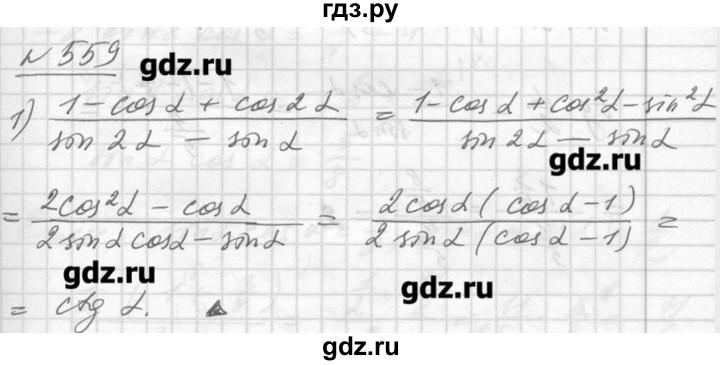 гдз.ру
№ 559
gdz.ru
1) (1 - cos α + cos 2α) / (sin 2α - sin α) = (1 - cos α + cos²α - sin²α) / (sin 2α - sin α)
gdz.ru
= (2cos²α - cos α) / (2 sin α cos α - sin α) = (2 cos α (cos α - 1)) / (2 sin α (cos α - 1)) =
gdz.ru
gdz.ru
= ctg α.
gdz.ru